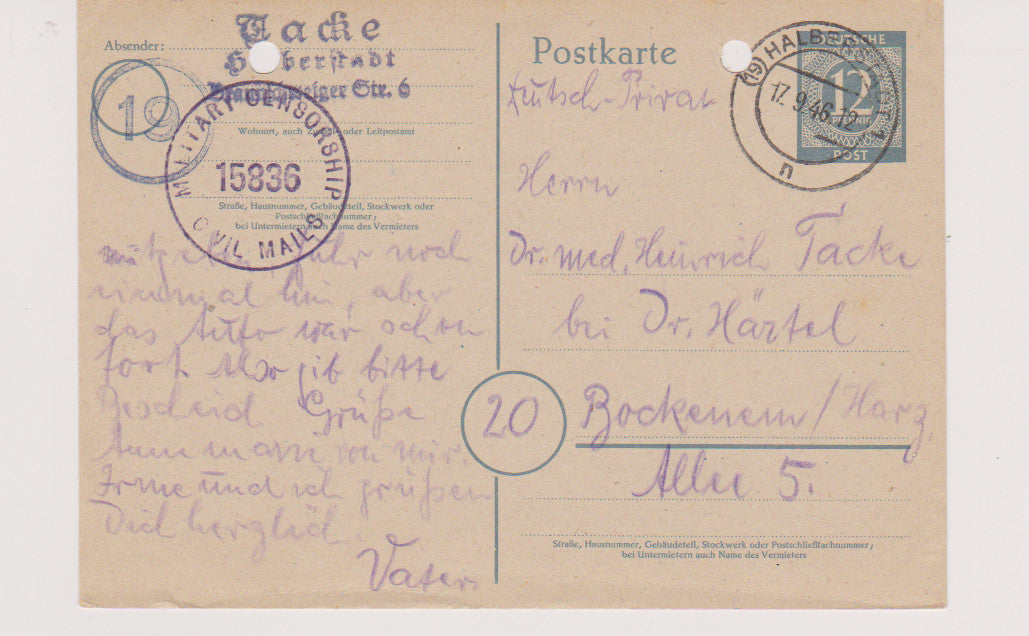 Absender:
Tacke
Halberstadt
Braunschweiger Str. 6
19
Wohnort, auch Zustell- oder Leitpostamt
MILITARY CENSORSHIP
15836
CIVIL MAILS
Straße, Hausnummer, Gebäudeteil, Stockwerk oder
Postschließfachnummer;
bei Untermietern auch Name des Vermieters
Uhr noch
einmal hin, aber
das Auto war schon
fort. gib bitte
Bescheid Grüße
Annemarie von mir.
Irme und ich grüßen
Dich herzlich.
Vater.
Postkarte
(19) HALBERSTADT 1
17.9.46.-12
n
DEUTSCHE
12
PFENNIG
POST
Deutsch-Privat
Herrn
Dr. med. Heinrich Tacke
bei Dr. Härtel
20
Bockenem/Harz.
Allee 5.
Straße, Hausnummer, Gebäudeteil, Stockwerk oder Postschließfachnummer;
bei Untermietern auch Name des Vermieters